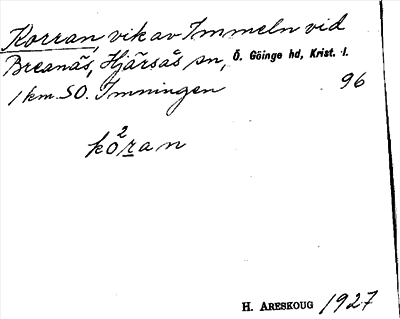 Korran, vik av Immeln vid
Breanäs, Hjärsås sn, Ö. Göinge hd, Krist. l.
1 km. SO. Imningen 96
kò²ran
H. ARESKOUG 1927